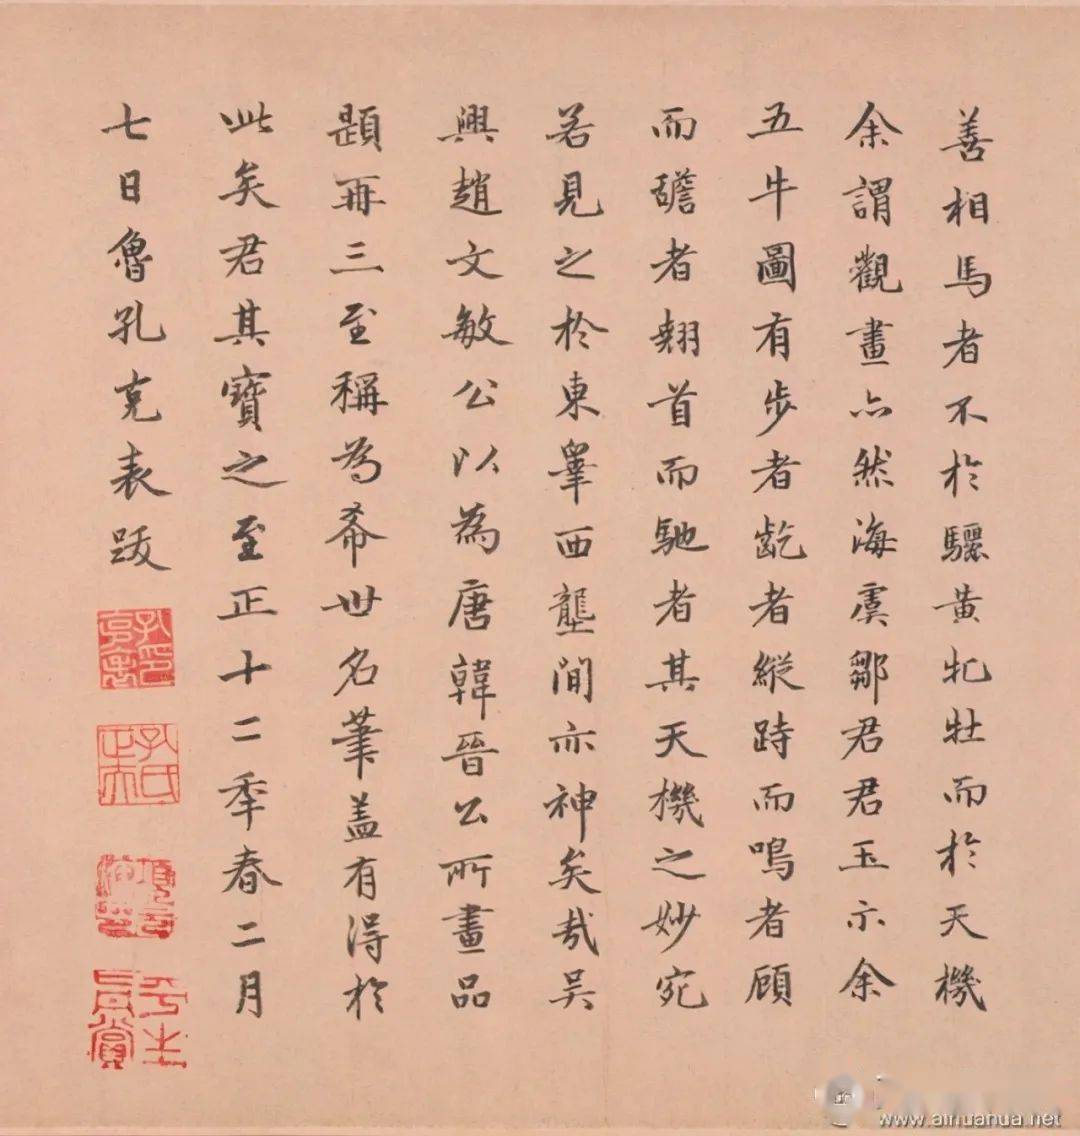 善相馬者不於驪黃牝牡而於天機
余謂觀畫亦然海虞鄒君君玉示余
五牛圖有步者齕者縱跱而鳴者顧
而䑛者翹首而馳者其天機之妙宛
若見之於東皐西壟間亦神矣哉吳
興趙文敏公以為唐韓晉公所畫品
題再三至稱為希世名筆盖有得於
此矣君其寶之至正十二年春二月
七日魯孔克表跋
平生
真賞
www.aihuahua.net